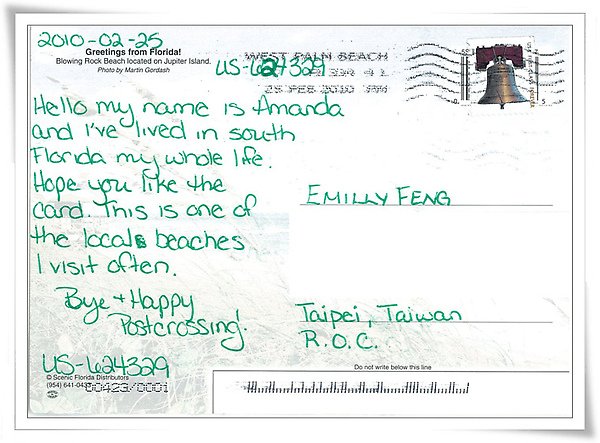 2010-02-25
Greetings from Florida!
Blowing Rock Beach located on Jupiter Island.
Photo by Martin Gordash
US-624329
WEST PALM BEACH
25 FEB 2010 PM
Hello my name is Amanda
and I've lived in south
Florida my whole life.
Hope you like the
card. This is one of
the local beaches
I visit often.
Bye + Happy
Postcrossing!
US-624329
© Scenic Florida Distributors
(954) 641-0433
00423/0001
EMILLY FENG
Taipei, Taiwan
R.O.C.
Do not write below this line